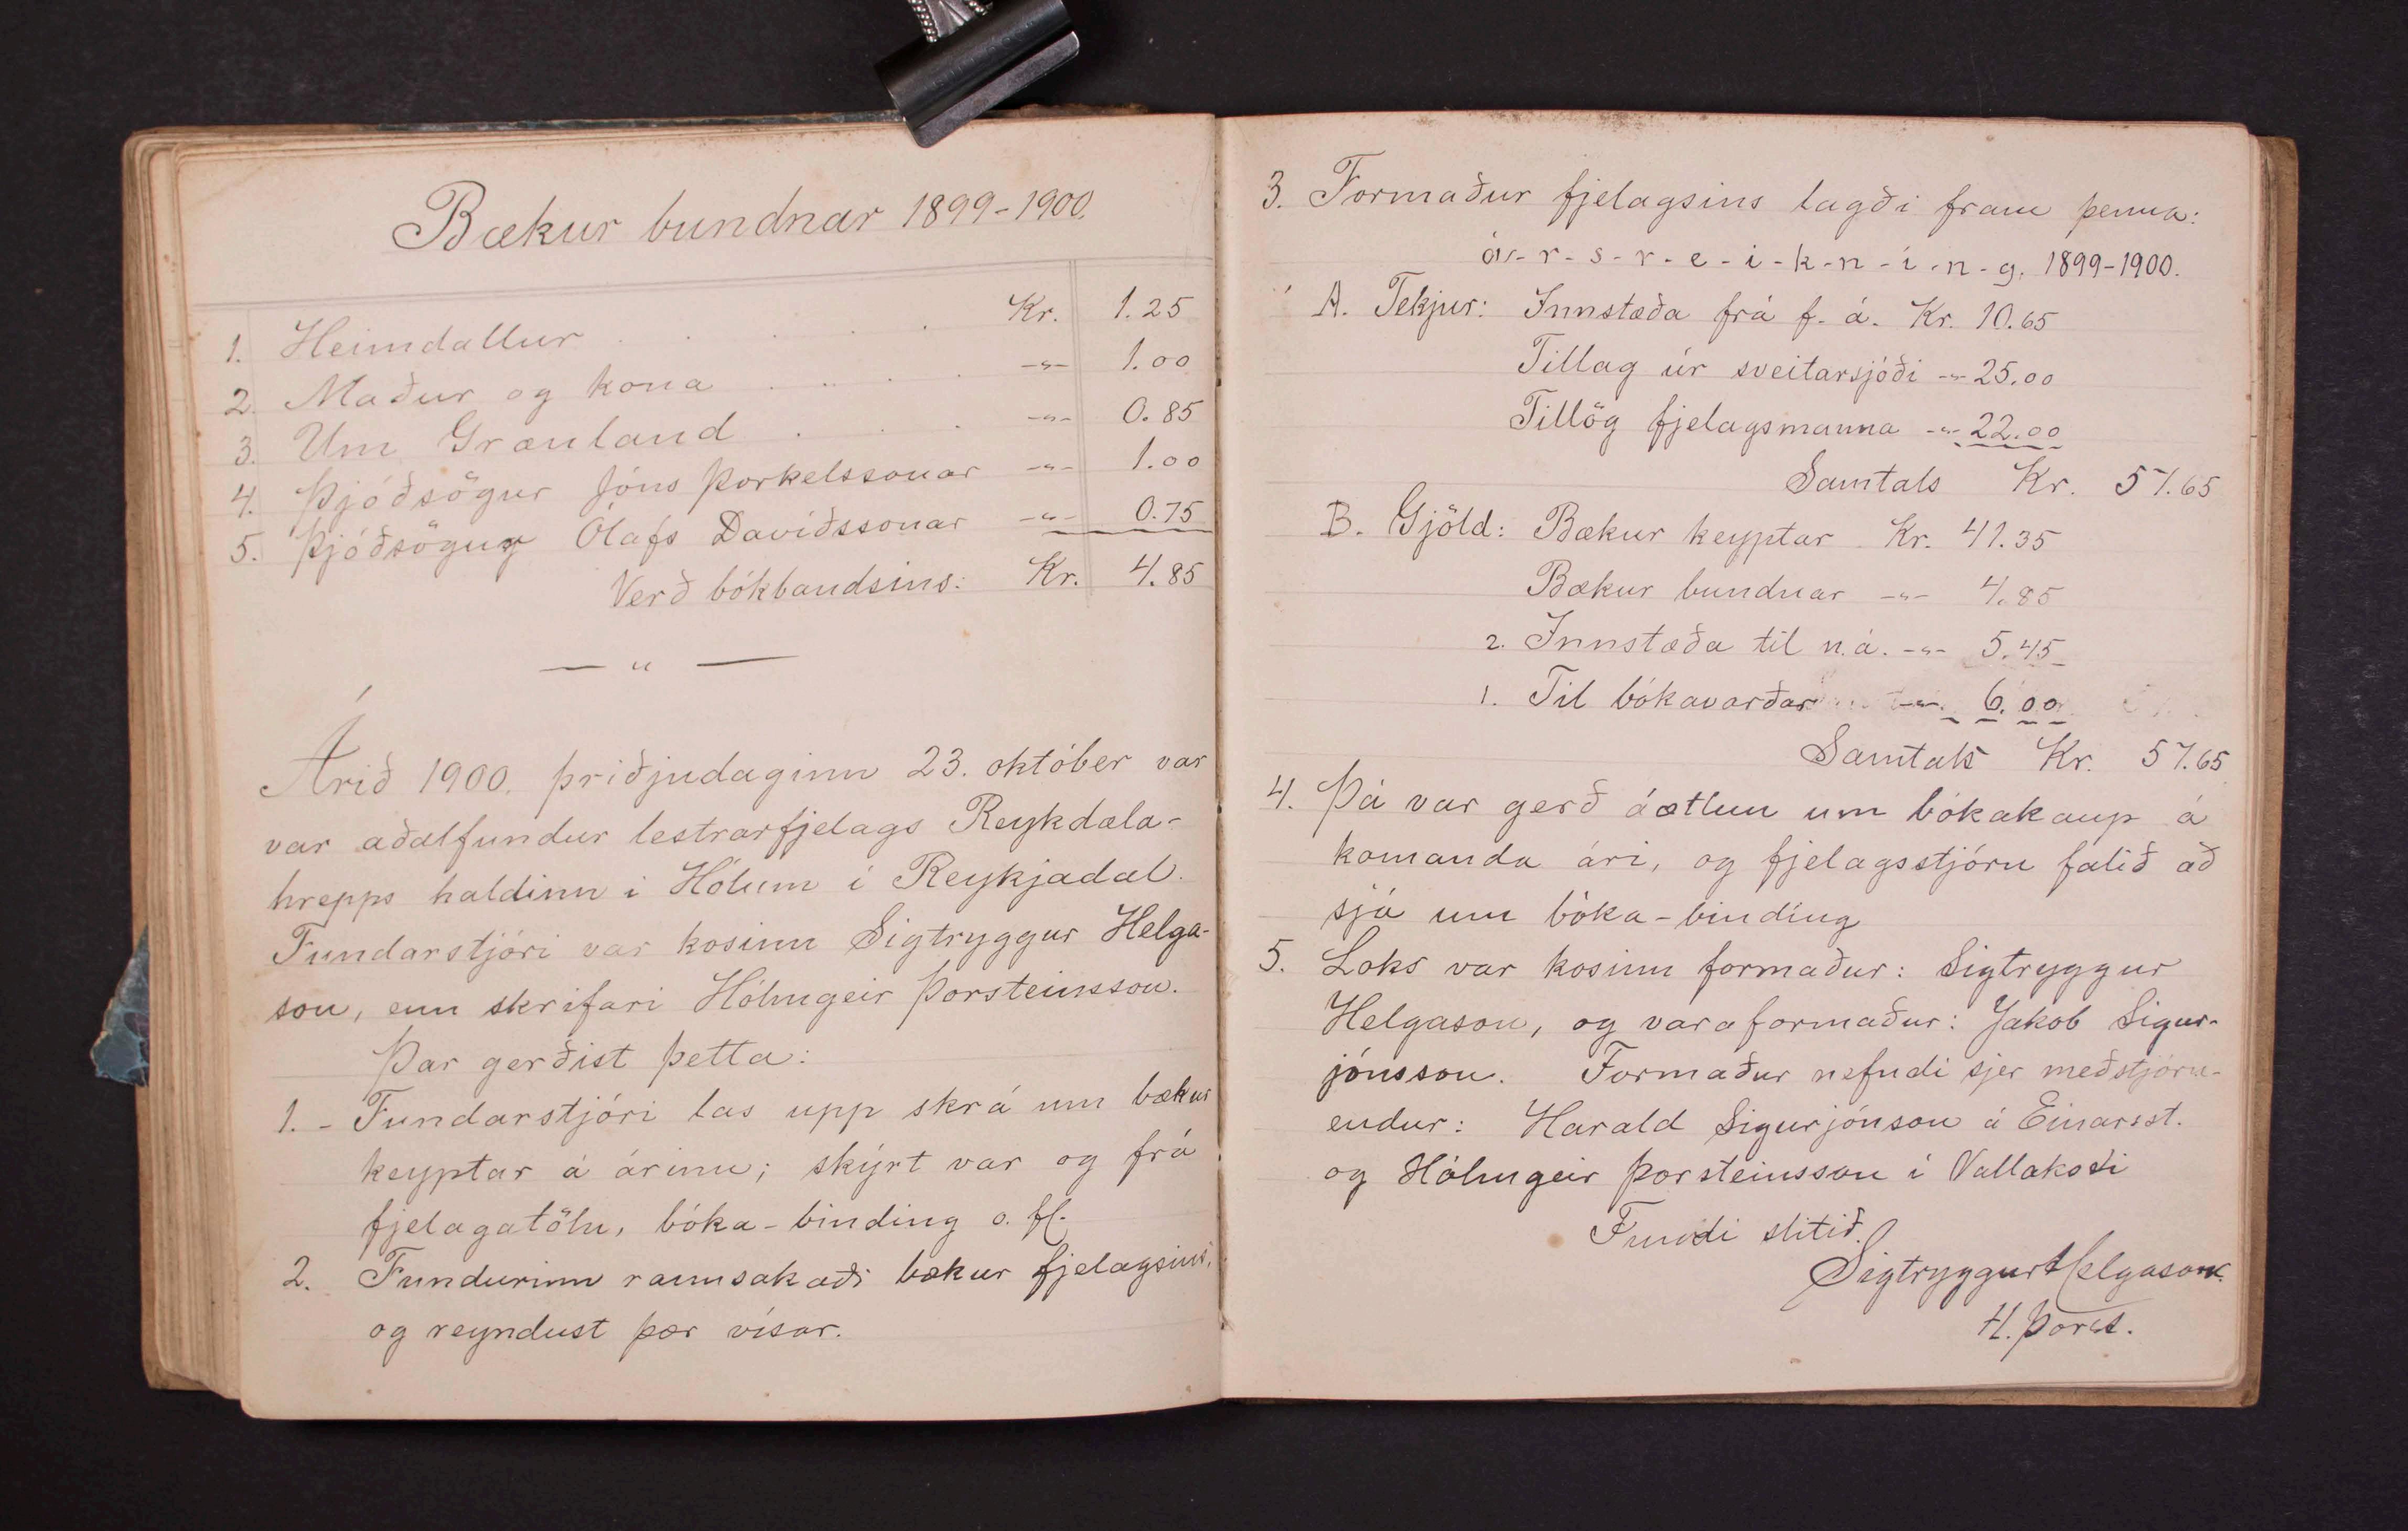 Bækur bundnar 1899-1900.
1. Heimdallur . . . . . Kr. 1.25
2. Maður og kona . . . . -"- 1.00
3. Um Grænland . . . -"- 0.85
4. Þjóðsögur Jóns Þorkelssonar -"- 1.00
5. Þjóðsögur Ólafs Davíðssonar -"- 0.75
Verð bókbandsins: Kr. 4.85
— " —
Árið 1900. þriðjudaginn 23. október var
var aðalfundur lestrarfjelags Reykdæla-
hrepps haldinn i Hólum í Reykjadal.
Fundarstjóri var kosinn Sigtryggur Helga-
son, enn skrifari Hólmgeir Þorsteinsson.
Þar gerðist þetta:
1. - Fundarstjóri las upp skrá um bækur
keyptar á árinu; skýrt var og frá
fjelagatölu, bóka-binding o. fl.
2. Fundurinn rannsakaði bækur fjelagsins,
og reyndust þær vísar.
3. Formaður fjelagsins lagði fram þenna:
á-r-s-r-e-i-k-n-i-n-g. 1899-1900.
A. Tekjur: Innstæða frá f. á. Kr. 10.65
Tillag úr sveitarsjóði -"- 25.00
Tillög fjelagsmanna -"- 22.00
Samtals Kr. 57.65
B. Gjöld: Bækur keyptar Kr. 41.35
Bækur bundnar -"- 4.85
2. Innstæða til n.á. -"- 5.45
1. Til bókavarðar -"- 6.00
Samtals Kr. 57.65
4. Þá var gerð áætlun um bókakaup á
komanda ári, og fjelagsstjórn falið að
sjá um bóka-binding
5. Loks var kosinn formaður: Sigtryggur
Helgason, og varaformaður: Jakob Sigur-
jónsson. Formaður nefndi sjer meðstjórn-
endur: Harald Sigurjónson á Einarsst.
og Hólmgeir Þorsteinsson í Vallakoti
Fundi slitið.
Sigtryggur Helgason.
H. Þorst.